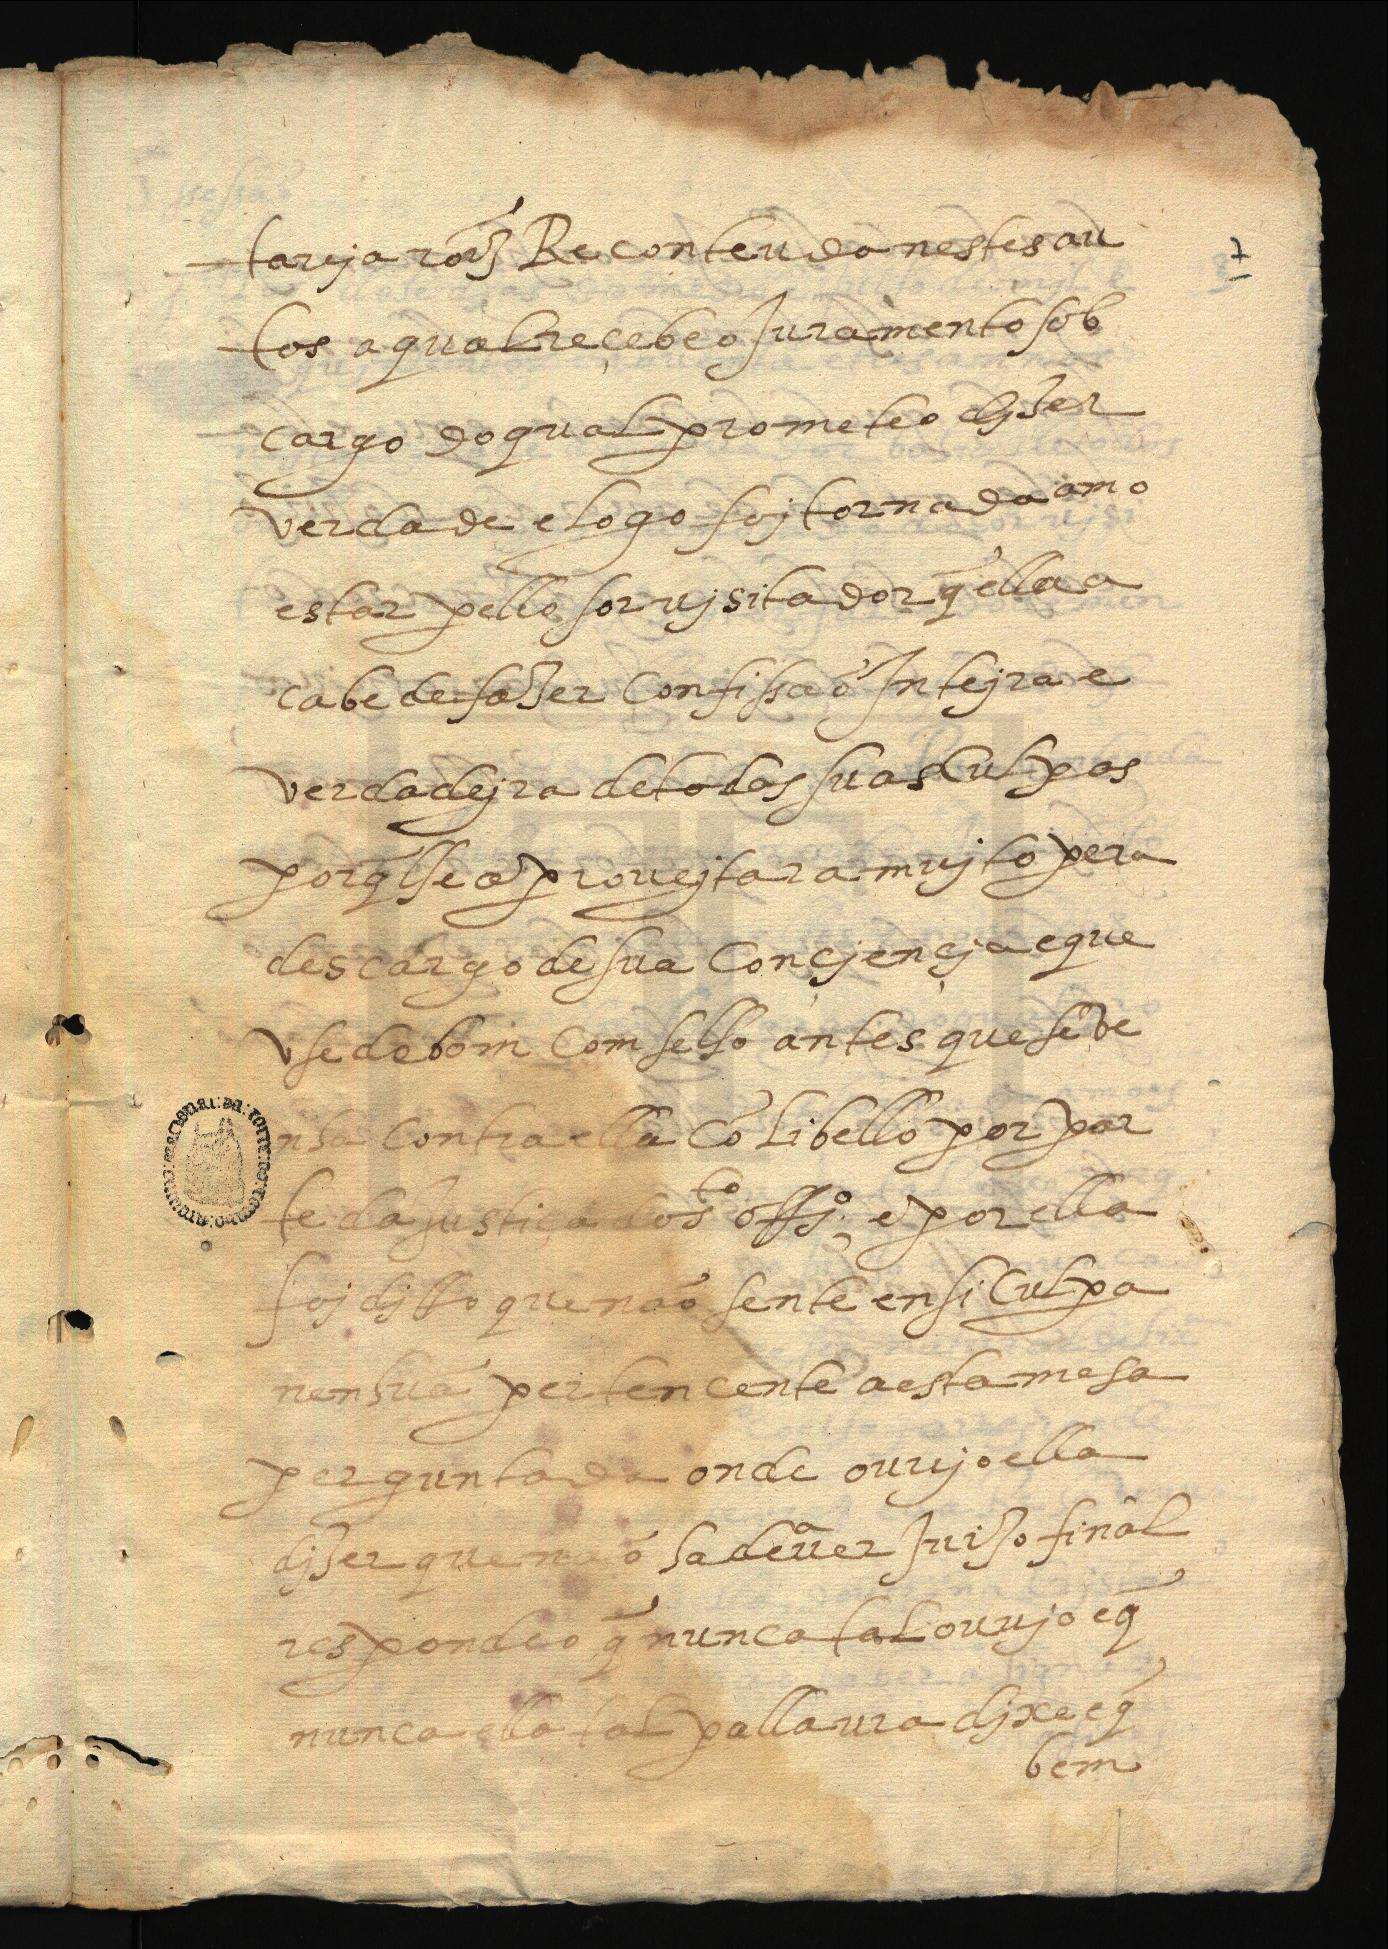 taruja roīz Re conteuda nestes au
7
tos a qual reçebeo Juramento sob
cargo do qual prometeo djzer
verdade e logo foj tornada amo
estar pello sor vjsitador q̃ ella a
cabe de fazer Confissaõ Intejra e
verdadejra de todas suas Culpas
porq̃ lhe aprouejtara mujto pera
descargo de sua Conçjençja e que
vse de bom Comselho antes que se ve
nha Contra ella Cõ Libello por par
te da justiça do sto offjo. e por ella
foj djtto que naõ sente en si Culpa
nenhuã pertencente a esta mesa
perguntada onde ouujo ella
djzer que naõ ha de auer Juizo final
respondeo q̃ nunca tal ouujo e q̃
nunca ella tal pallaura djxe e q̃
bem